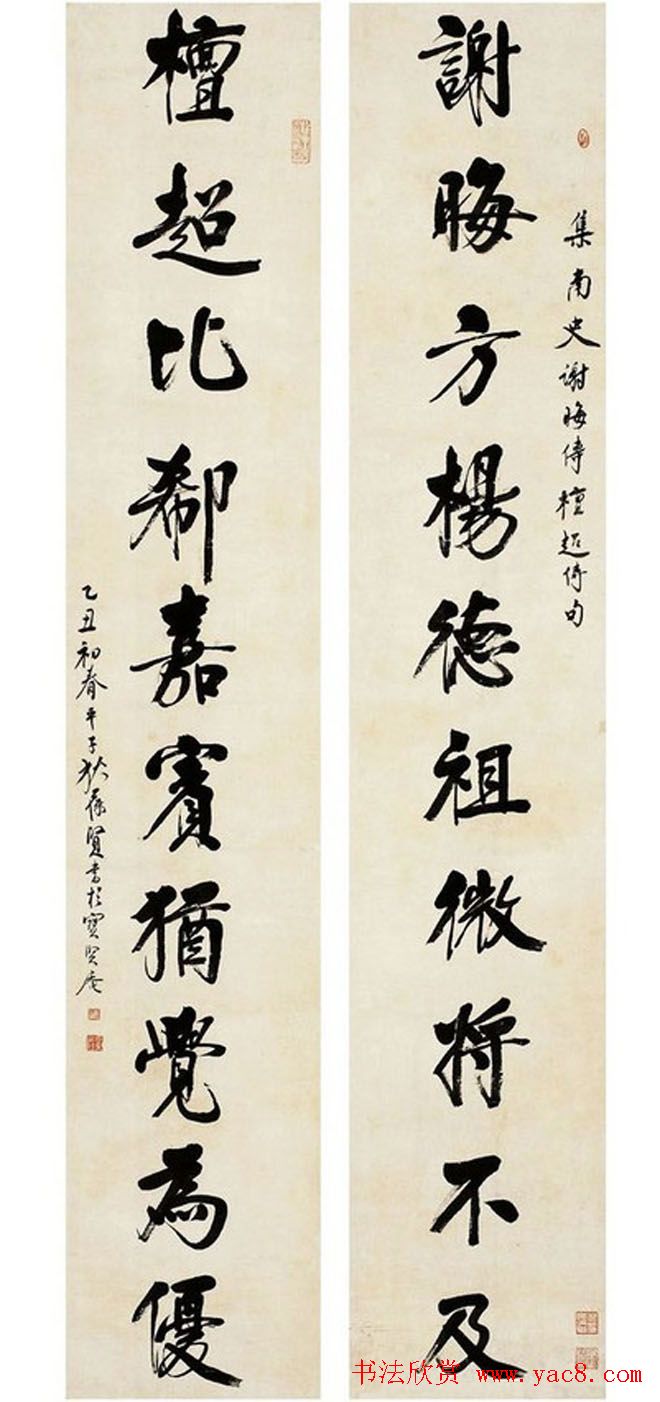 集南史謝晦傳檀超傳句
謝晦方楊德祖微將不及
檀超比郗嘉賓猶覺為優
乙丑初春平子狄葆賢書於寶賢庵
书法欣赏 www.yac8.com